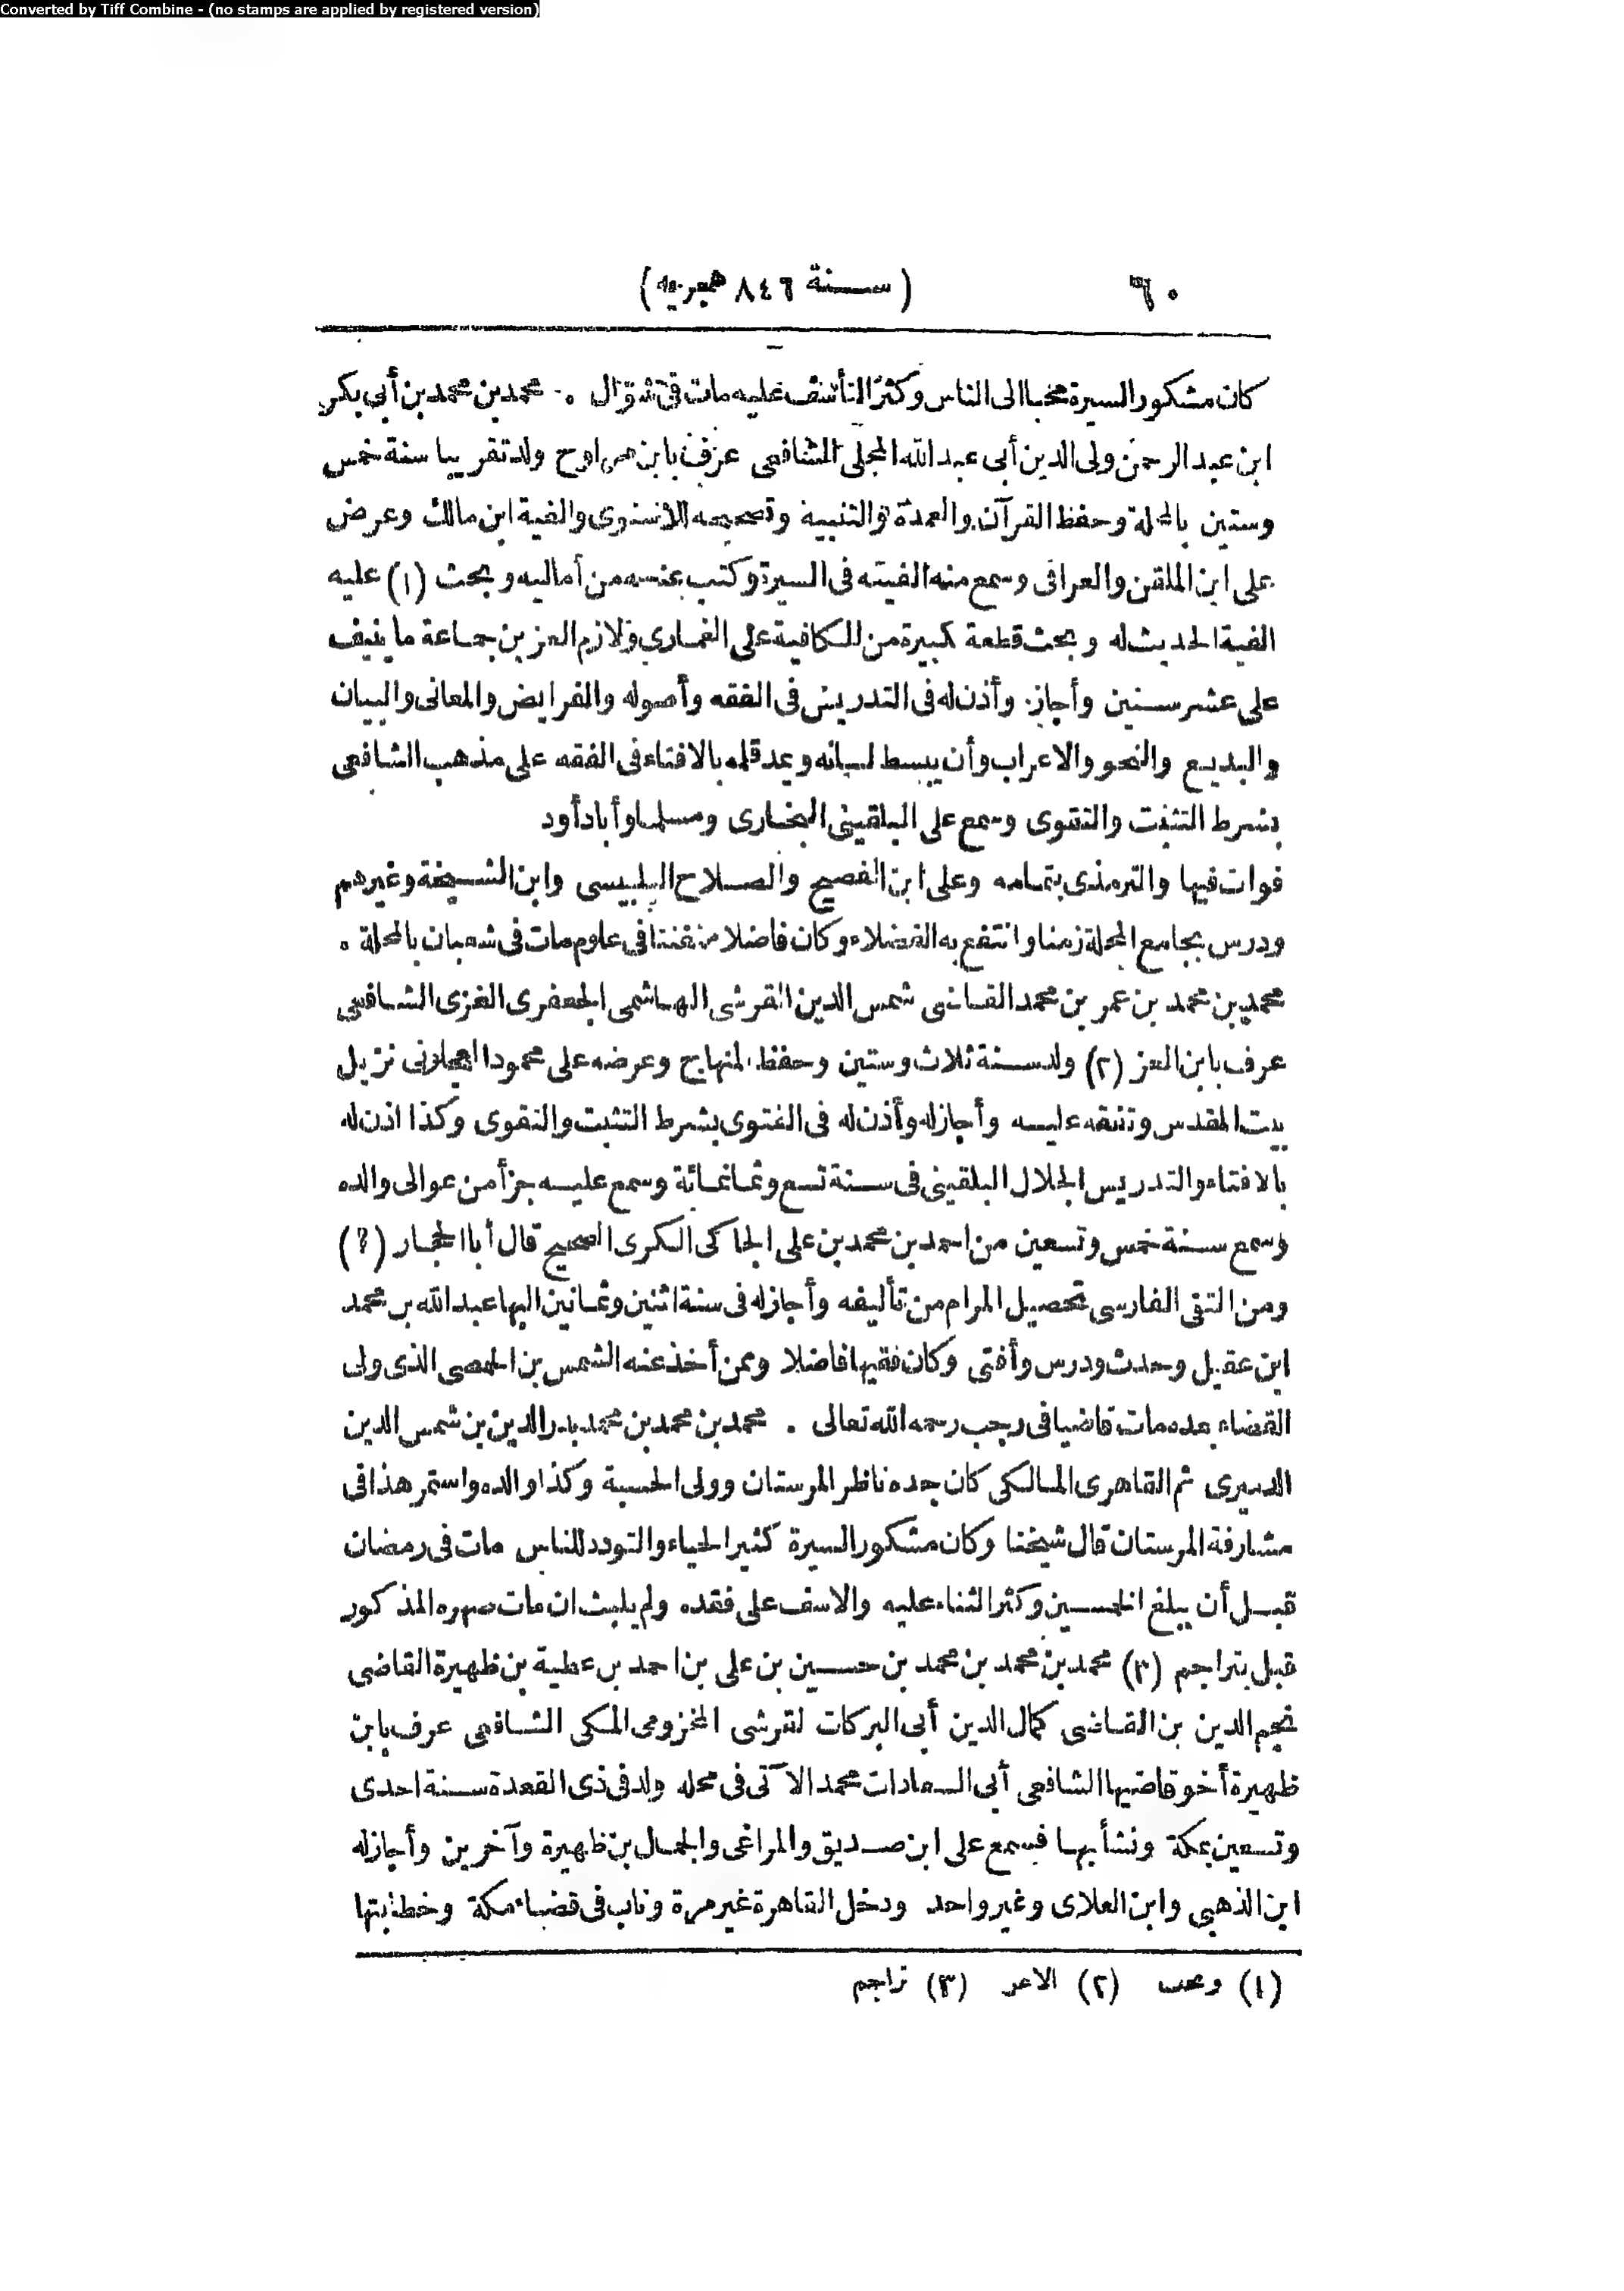 Converted by Tiff Combine - (no stamps are applied by registered version)
٦٠ (سنة ٨٤٦ هجريه)
كان مشكور السيرة محببا الى الناس وكثر التأسف عليه مات فى شوّال ٠ محمد بن محمد بن أبى بكر
ابن عبد الرحمن ولى الدين أبى عبد الله المحلى الشافعى عرف بابن مراوح ولد تقريبا سنة خمس
وستين بالمحلة وحفظ القرآن والعمدة والتنبيه وتصحيحه للاسنوى والفية ابن مالك وعرض
على ابن الملقن والعراقى وسمع منه الفيته فى السيرة وكتب عنه من أماليه وبحث (١) عليه
الفية الحديث له وبحث قطعة كبيرة من الكافية على الغمارى ولازم العز بن جماعة ما ينيف
على عشر سنين وأجاز. وأذن له فى التدريس فى الفقه وأصوله والفرايض والمعانى والبيان
والبديع والنحو والاعراب وأن يبسط لسانه ويمد قلمه بالافتاء فى الفقه على مذهب الشافعى
بشرط التثبت والتقوى وسمع على البلقينى البخارى ومسلما وأبا دأود
فوات فيها والترمذى بتمامه وعلى ابن الفصيح والصلاح البلبيسى وابن الشيخة وغيرهم
ودرس بجامع المحلة زمنا وانتفع به الفضلاء وكان فاضلا متفننا فى علوم مات فى شعبان بالمحلة ٠
محمد بن محمد بن عمر بن محمد القاضى شمس الدين القرشى الهاشمى الجعفرى الغزى الشافعى
عرف بابن العز (٢) ولد سنة ثلاث وستين وحفظ المنهاج وعرضه على محمودا العجلونى نزيل
بيت المقدس وتفقه عليه وأجاز له وأذن له فى الفتوى بشرط التثبت والتقوى وكذا اذن له
بالافتاء والتدريس الجلال البلقينى فى سنة تسع وثمانمائة وسمع عليه جزأ من عوالى والده
وسمع سنة خمس وتسعين من احمد بن محمد بن على الحاكى الكرى الصحيح قال أبا الحجار (؟)
ومن التقى الفارسى تحصيل المرام من تأليفه وأجاز له فى سنة اثنين وثمانين البها عبد الله بن محمد
ابن عقيل وحدث ودرس وأفتى وكان فقيها فاضلا وممن أخذ عنه الشمس بن الحمصى الذى ولى
القضاء بعده مات قاضيا فى رجب رحمه الله تعالى . محمد بن محمد بن محمد بدر الدين بن شمس الدين
الدميرى ثم القاهرى المالكى كان جده ناظر المرستان وولى الحسبة وكذا والده واستمر هذا فى
مشارفة المرستان قال شيخنا وكان مشكور السيرة كثير الحياء والتودد للناس مات فى رمضان
قبل أن يبلغ الخمسين وكثر الثناء عليه والاسف على فقده ولم يلبث ان مات صهره المذكور
قبل بتراجم (٣) محمد بن محمد بن محمد بن حسين بن على بن احمد بن عطية بن ظهيرة القاضى
نجم الدين بن القاضى كمال الدين أبى البركات القرشى المخزومى المكى الشافعى عرف بابن
ظهيرة أخو قاضيها الشافعى أبى السعادات محمد الآتى فى محله ولد فى ذى القعدة سنة احدى
وتسعين بمكة ونشأ بها فسمع على ابن صديق والمراغى والجمال بن ظهيرة وآخرين وأجاز له
ابن الذهبى وابن العلاى وغير واحد ودخل القاهرة غير مرة وناب فى قضاء مكة وخطابتها
(١) وبحث (٢) الاعر (٣) تراجم